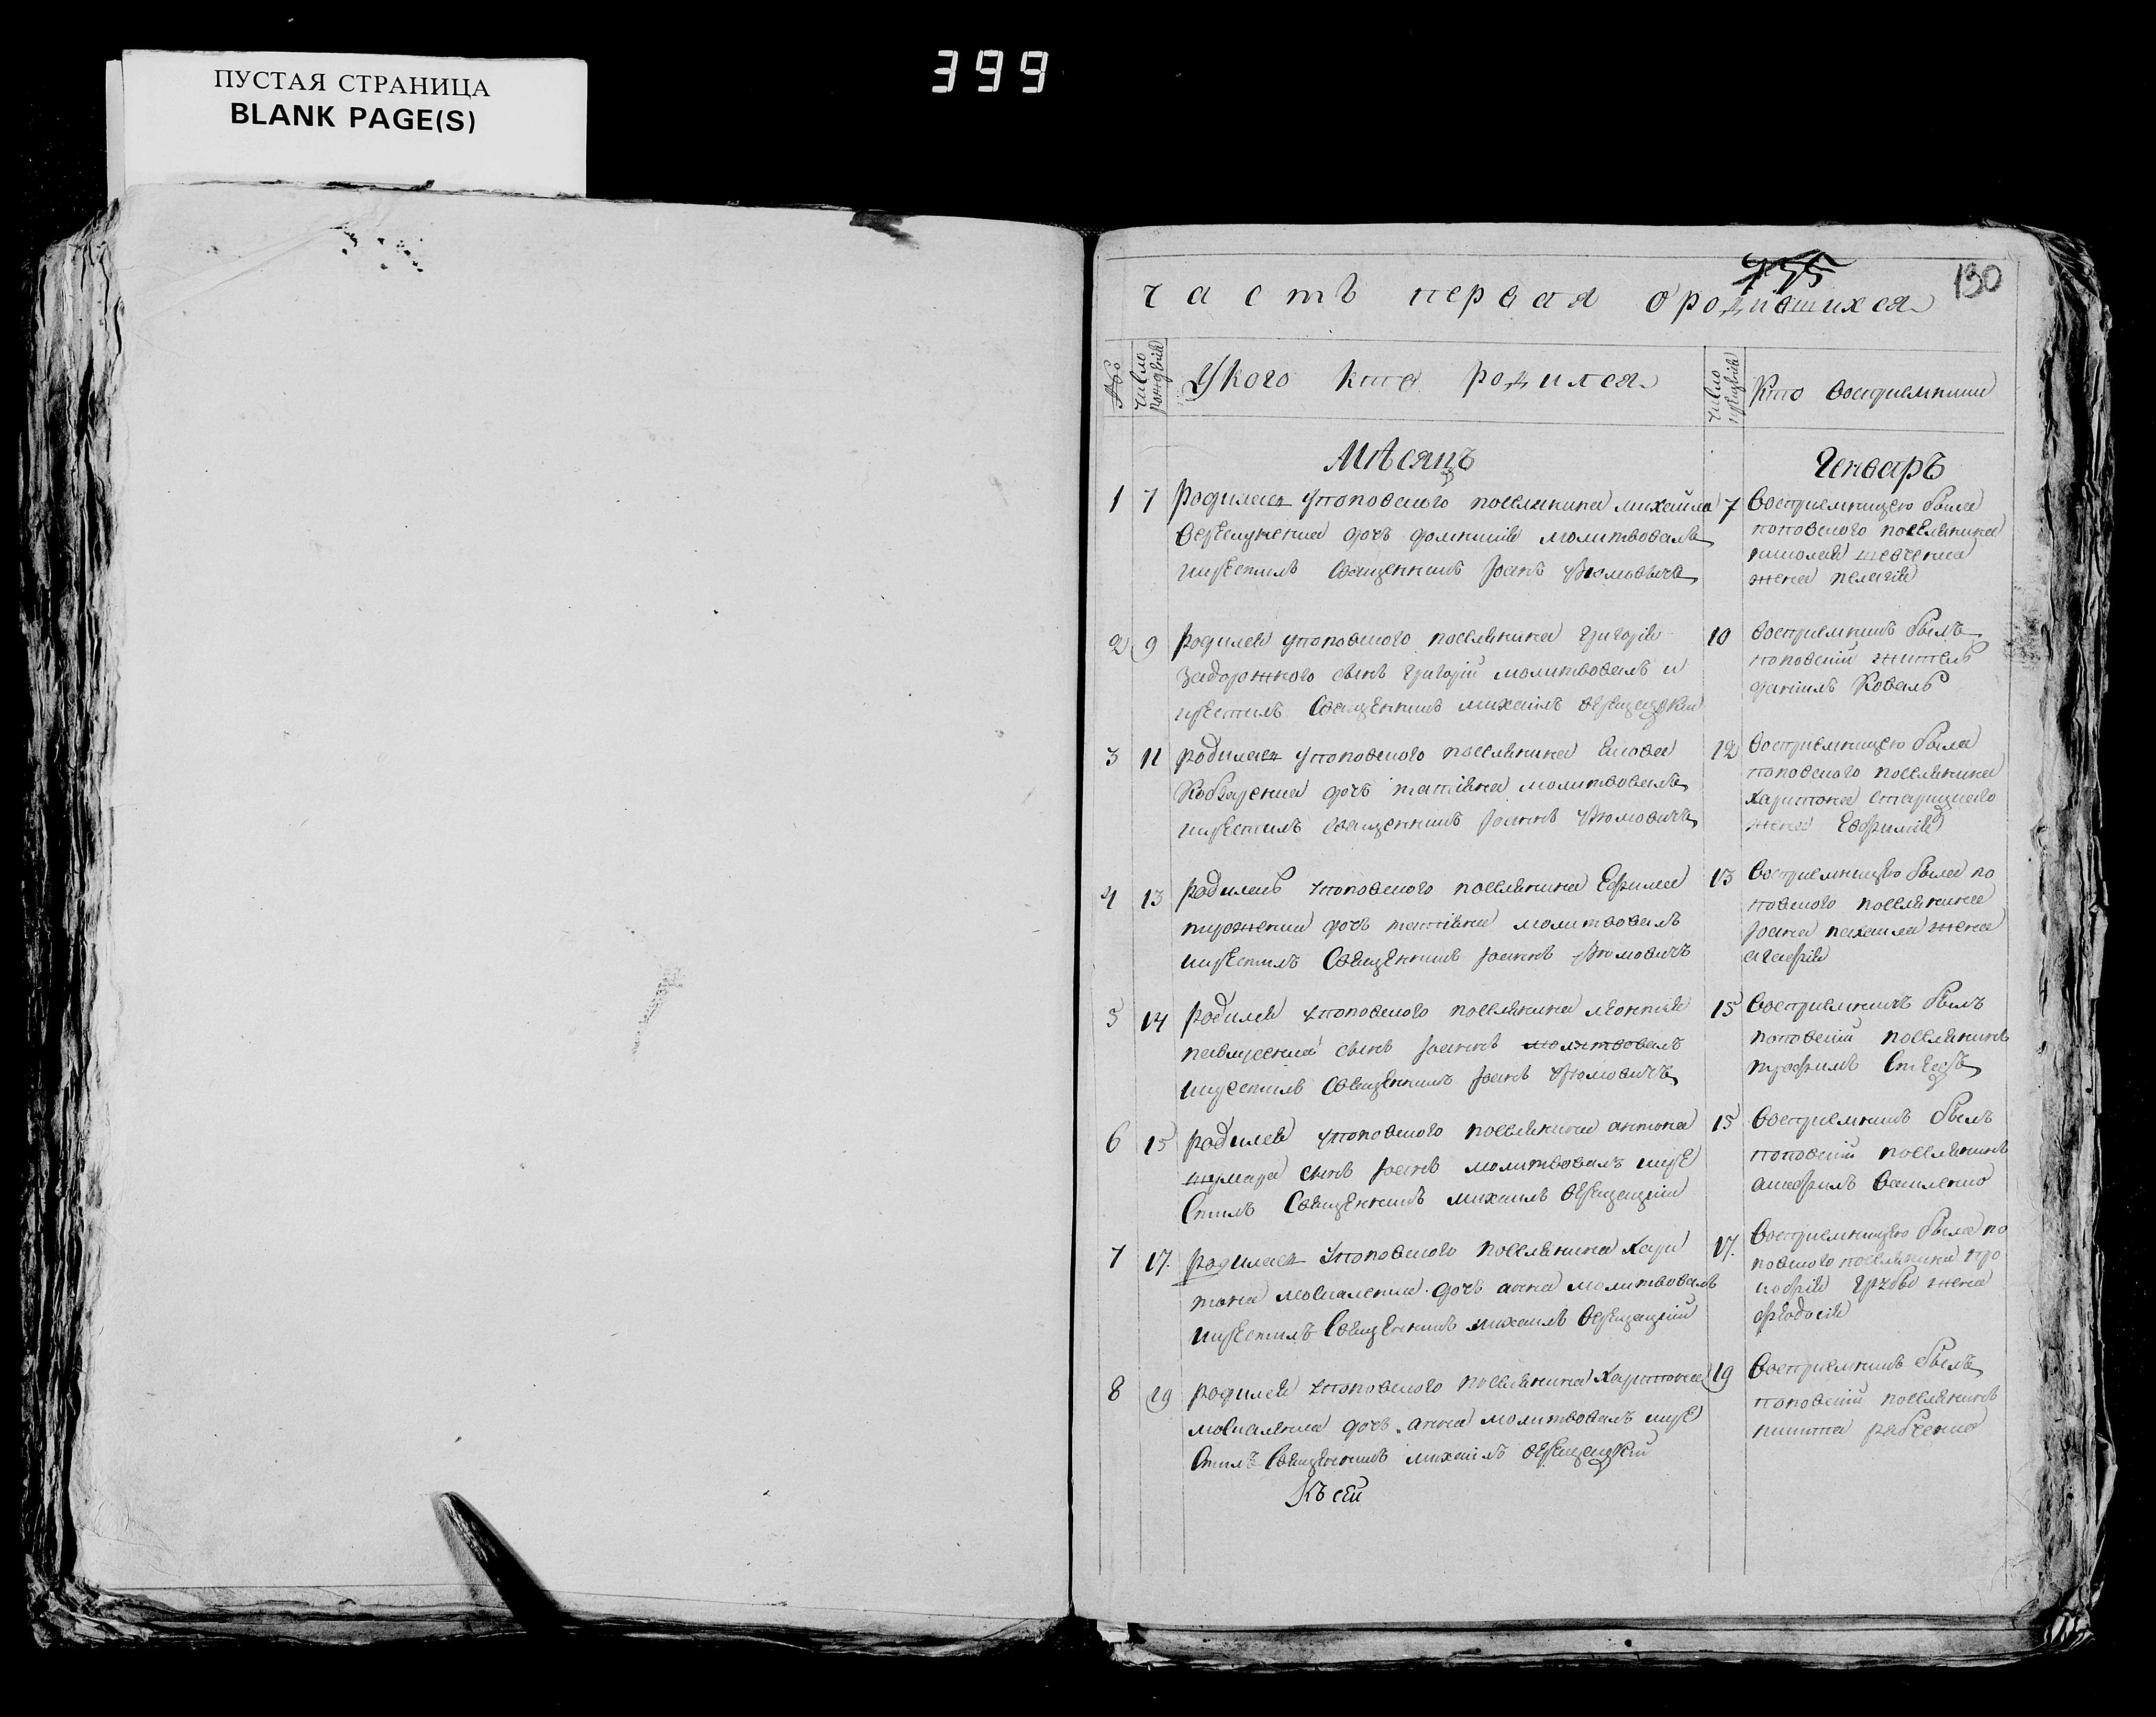 399
ПУСТАЯ СТРАНИЦА
BLANK PAGE(S)
130
часть первая о родившихся
число рождения
У кого кто родился
число крещения
Кто восприемники
Мѣсяцъ
Генварь
1 7 родилась у поповского поселянина михайла
дочь домникия молитвовалъ
и крестилъ Священникъ Іоанъ
7 Восприемницею была
поповского поселянина
николая шевченка
жена пелагия
2 9 родился у поповского поселянина григория
Задорожного сынъ григорий молитвовалъ и
крестилъ Священникъ михаилъ Верещацкий
10 восприемникъ былъ
поповский житель
даниилъ Коваль
3 11 родилась у поповского поселянина
дочь татияна молитвовалъ
и крестилъ священникъ Іоаннъ
12 Восприемницею была
поповского поселянина
харитона старицкого
жена Евфимия
4 13 родилась у поповского поселянина Ефима
дочь татияна молитвовалъ
и крестилъ Священникъ Іоаннъ
13 Восприемницею была по
повского поселянина
Іоана жена
агафия
5 14 родился у поповского поселянина леонтия
сынъ Іоаннъ молитвовалъ
и крестилъ Священникъ Іоанъ
15 Восприемникъ былъ
поповский поселянинъ
трофимъ
6 15 родился у поповского поселянина антона
сынъ Іоанъ молитвовалъ и кре
стилъ Священникъ михаилъ Верещацкий
15 Восприемникъ былъ
поповский поселянинъ
Василенко
7 17. родилась у поповского поселянина хари
тона москаленка дочь анна молитвовалъ
и крестилъ Священникъ михаилъ Верещацкий
17. Восприемницею была по
повского поселянина про
кофия жена
феодосия
8 19 родился у поповского поселянина Харитона
москаленка дочь анна молитвовалъ и кре
стилъ Священникъ михаилъ Верещацкий
19 Восприемникъ былъ
поповский поселянинъ
никита рябченко
Къ сей